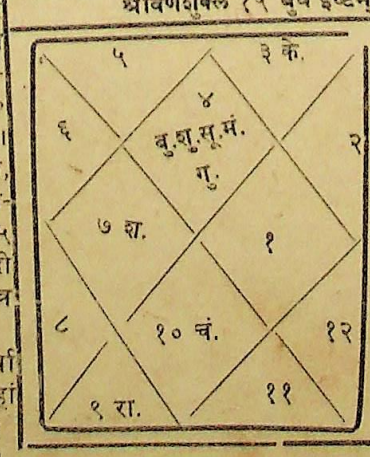 श्रावणशुक्ल १५ बुधे इष्टम्
५
३ के.
४
६
बु.शु.सू.मं.
२
गु.
७ श.
१
८
१० चं.
१२
९ रा.
११